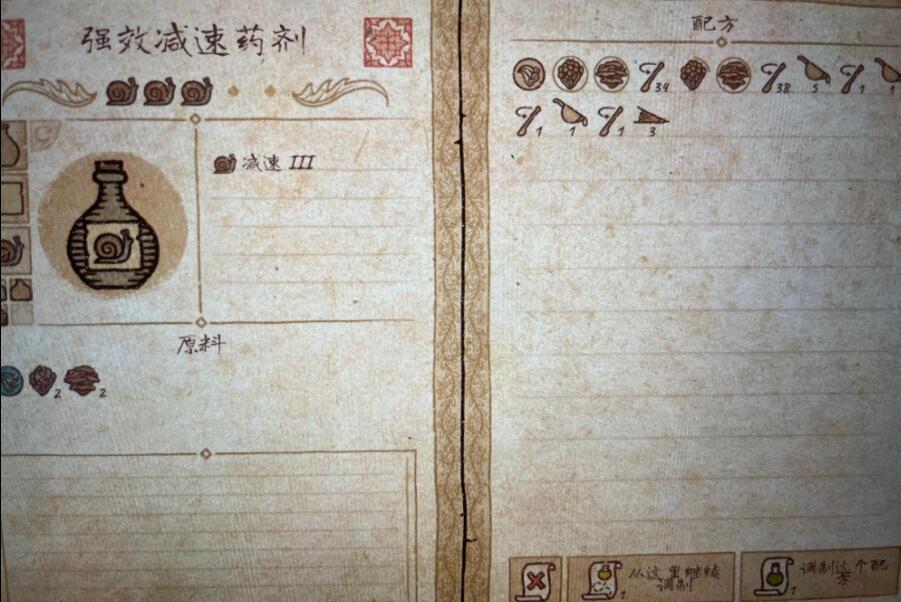 强效减速药剂
减速 III
原料
2 2
配方
38 5 1 1
1 1 1 3
从这里继续
调制
1
调制这个配
方
1